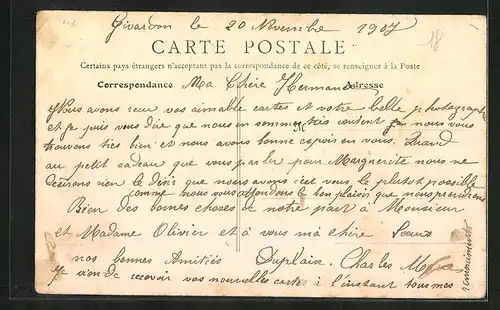 Givardon le 20 Novembre 1907
18
CARTE POSTALE
Certains pays étrangers n'acceptent pas la correspondance de ce côté, se renseigner à la Poste
Correspondance Ma Chère Hermance Adresse
Nous avons reçu vos aimable cartes et votre belle photographie
et je puis vous dire que nous en sommes très content je nous vous
M
trouvons très bien et nous avons bonne espoir en vous. Quand
au petit cadeau que vous parler pour Marguerite nous ne
nous vous c'est vous le plutôt possible
comme nous nous attendons le bon plaisir que nous prendrons
Bien des bonnes choses de notre part à Monsieur
et Madame Olivier et à vous ma chère Soeur
nos bonnes Amitiés Duplaix Charles
Je vien de recevoir vos nouvelles cartes à l'instant tous mes
remerciments